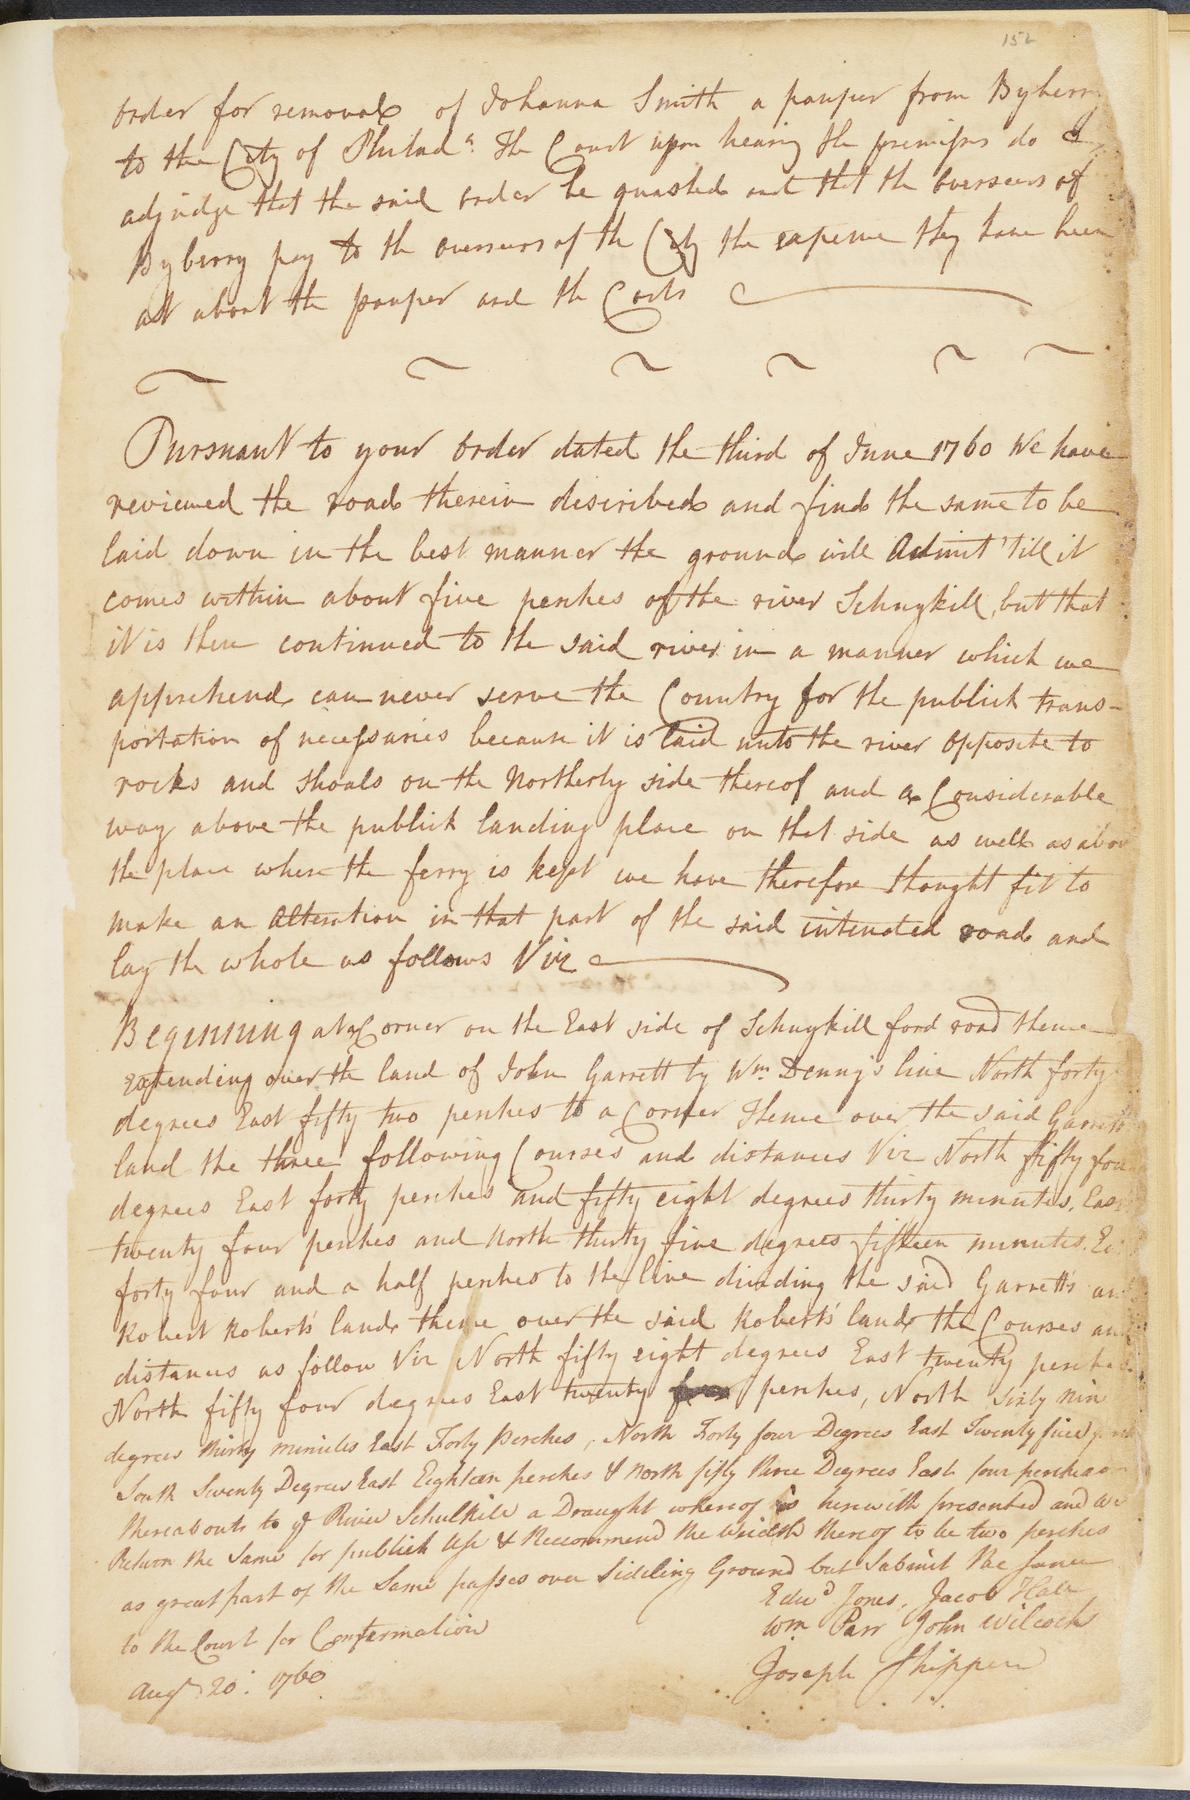 152
order for removal of Johanna Smith a pauper from Byberry
to the City of Philada. The Court upon hearing the premises do
adjudge that the said order be quashed and that the overseers of
Byberry pay to the overseers of the City the expence they have been
at about the pauper and the Costs
Pursuant to your order dated the third of June 1760 We have
reviewed the road therein discribed and find the same to be
laid down in the best manner the ground will Admit 'till it
comes within about five perches of the river Schuykill, but that
it is then continued to the said river in a manner which we
apprehend can never serve the Country for the publick trans-
portation of necessaries because it is laid unto the river opposite to
rocks and shoals on the Northerly side thereof and a Considerable
way above the publick landing place on that side as well as above
the place where the ferry is kept we have therefore thought fit to
make an Alteration in that part of the said intended road and
lay the whole as follows Viz
Beginning at a Corner on the East side of Schuykill ford road thence
extending over the land of John Garrett by Wm. Denny's line North forty
degrees East fifty two perches to a Corner Thence over the said Garretts
land the three following Courses and distances Viz North fifty four
degrees East forty perches and fifty eight degrees thirty minutes. East
twenty four perches and North thirty five degrees fifteen minutes. Ea
forty four and a half perches to the line dividing the said Garretts an
Robert Robert's land thence over the said Robert's land the Courses and
distances as follow Viz North fifty eight degrees East twenty perches
North fifty four degrees East twenty four perches, North sixty nin
degrees thirty minutes East Forty Perches, North Forty four Degrees East Twenty five perch
South Twenty Degrees East Eighteen perches & North fifty three Degrees East four perches or
thereabouts to ye River Schulkill a Draught whereof is herewith presented and we
Return the Same for publick Use & Reccommend the Weidth thereof to be two perches
as great part of the Same passes over Sideling Ground but Submit the Same
to the Court for Confirmation
Augt. 20: 1760
Edwd Jones, Jacob Hall
Wm Parr John Wilcocks
Joseph Shippen